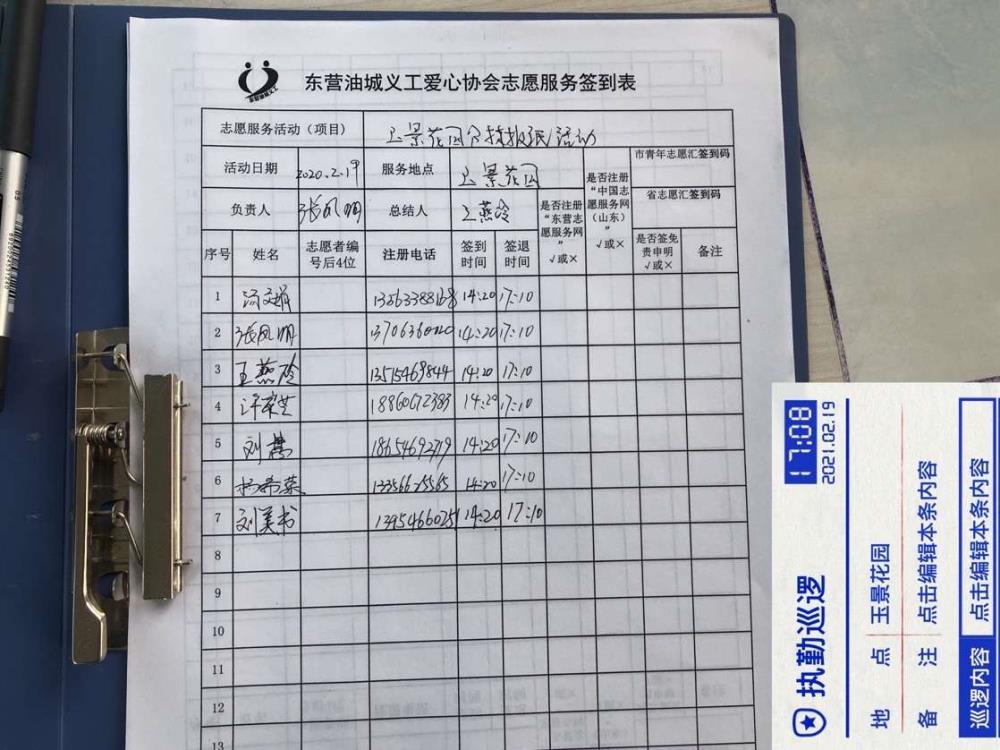 东营油城义工爱心协会志愿服务签到表
志愿服务活动（项目） 玉景花园 活动
活动日期 2020.2.19 服务地点 玉景花园
市青年志愿汇签到码
省志愿汇签到码
负责人 张凤明 总结人 王燕玲
是否注册“东营志愿服务网” √或×
是否注册“中国志愿服务网（山东）” √或×
序号 姓名 志愿者编号后4位 注册电话 签到时间 签退时间 是否签免责申明 √或× 备注
1 13563388168 14:20 17:10
2 张凤明 14:20 17:10
3 王燕玲 13515469844 14:20 17:10
4 18860672383 14:20 17:10
5 刘 18654692719 14:20 17:10
6 杨希荣 13356625565 14:20 17:10
7 刘美书 14:20 17:10
8
9
10
11
12
13
执勤巡逻 17:08
2021.02.19
地 点 玉景花园
备 注 点击编辑本条内容
巡逻内容 点击编辑本条内容